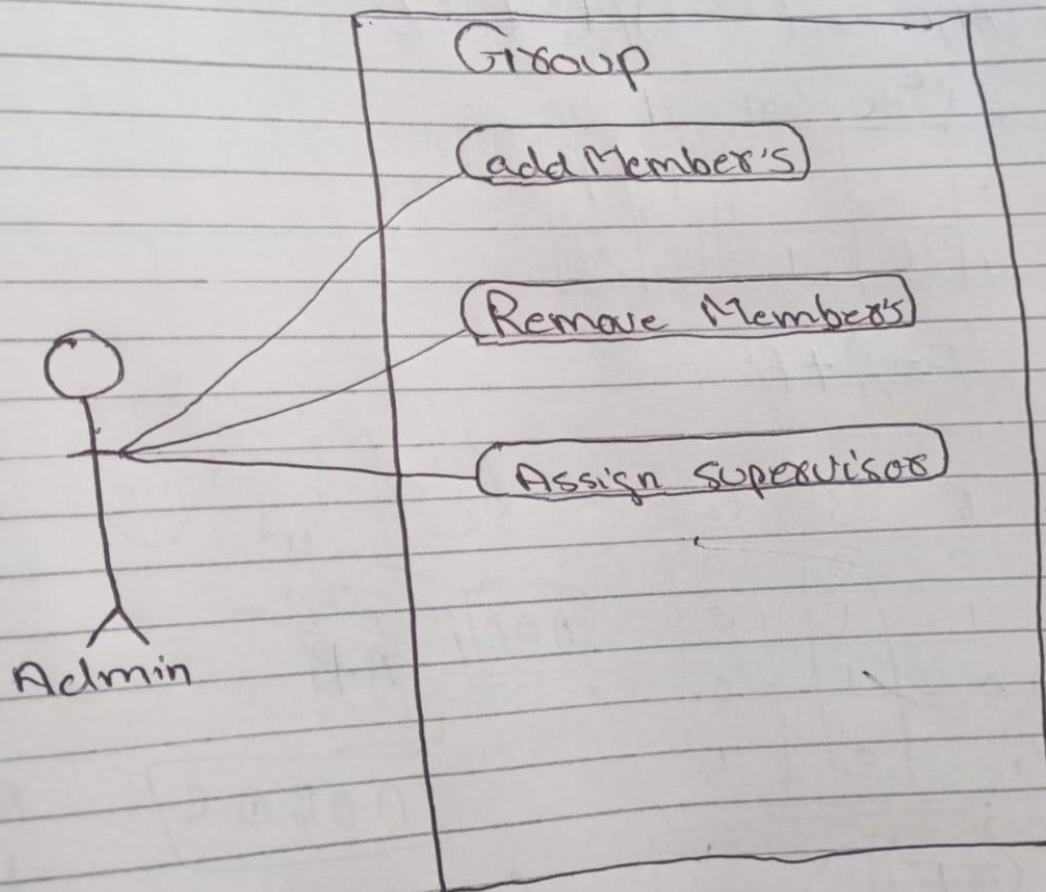 Group
add Member's
Remove Member's
Assign Supervisor
Admin